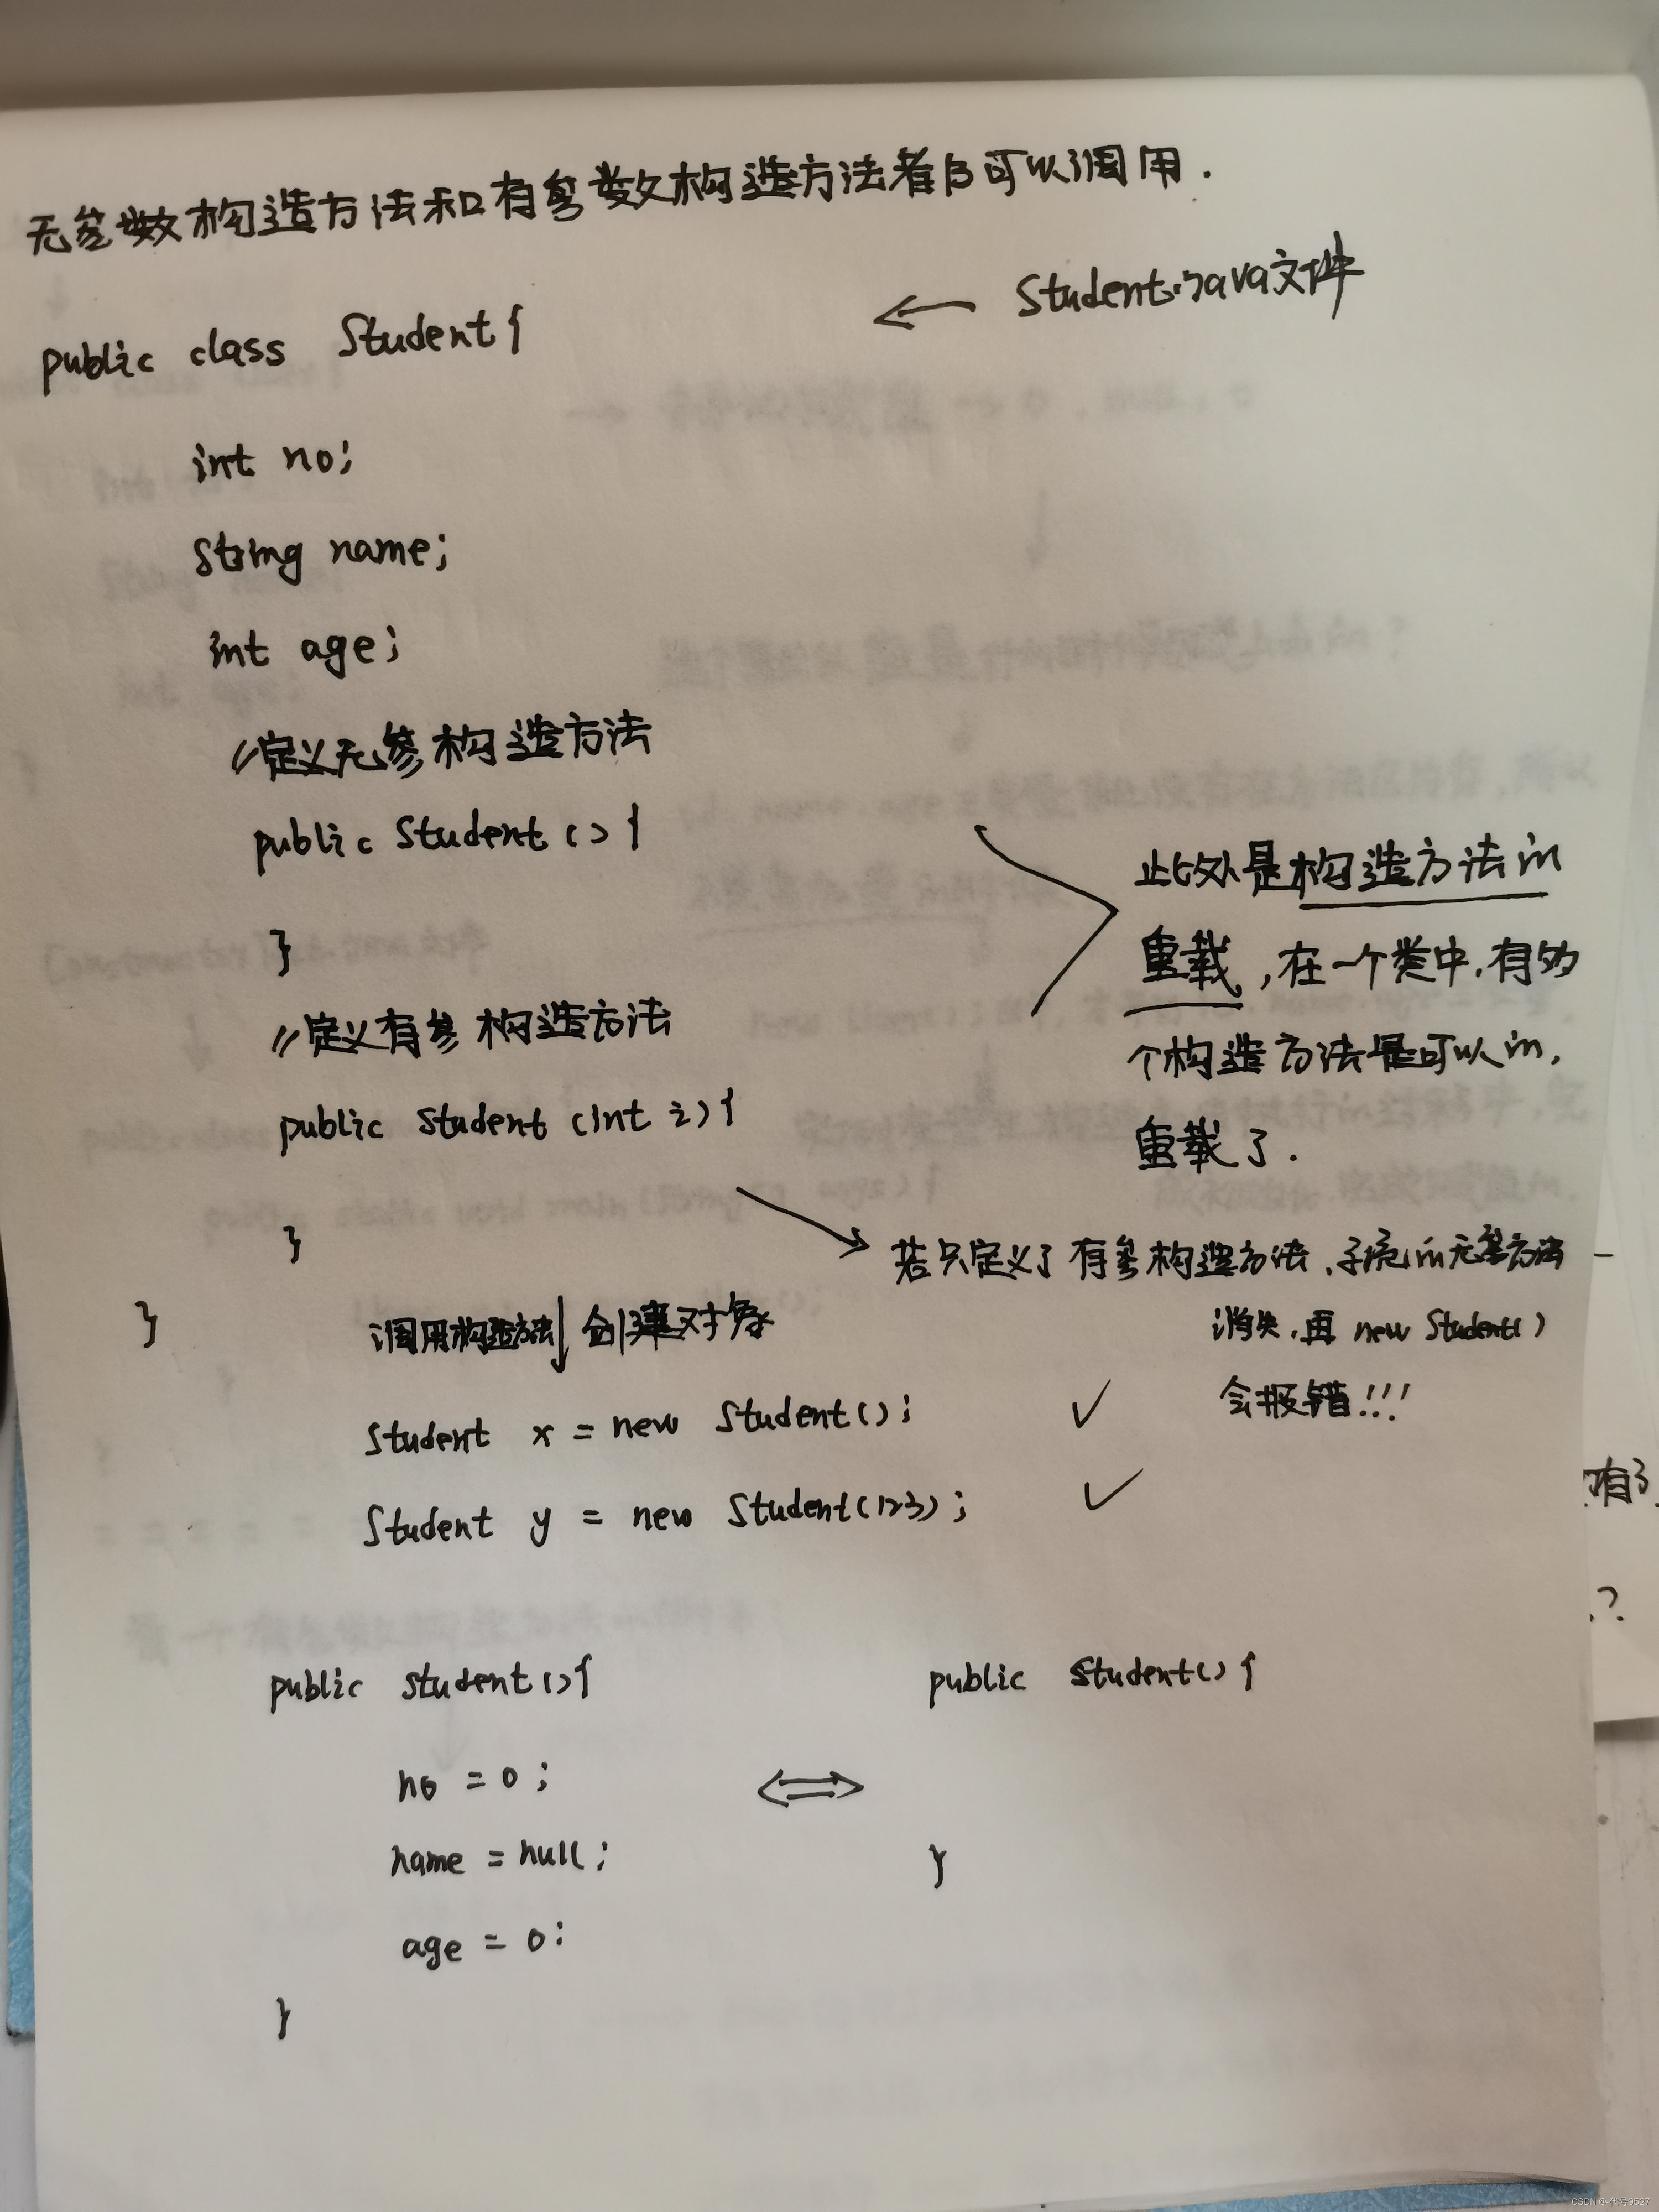 无参数构造方法和有参数构造方法都可以调用.
public class Student{
← Student.java文件
int no;
String name;
int age;
//定义无参构造方法
public Student(){
}
//定义有参构造方法
public Student(int i){
}
}
此处是构造方法的
重载,在一个类中,有多
个构造方法是可以的,
重载了.
若只定义了有参构造方法,系统的无参方法
消失,再 new Student()
会报错!!!
调用构造方法↓创建对象
Student x = new Student(); ✓
Student y = new Student(123); ✓
public Student(){
no = 0;
name = null;
age = 0;
}
⇔
public Student(){
}
有了
?
CSDN @代号9527